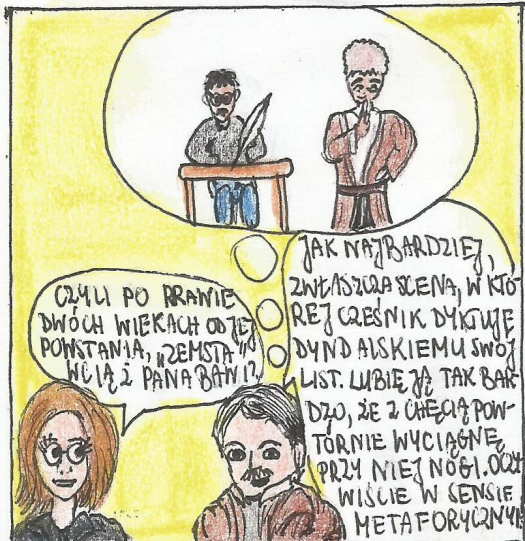 CZYLI PO PRAWIE
DWÓCH WIEKACH OD JEJ
POWSTANIA, „ZEMSTA”
WCIĄŻ PANA BAWI?
JAK NAJBARDZIEJ,
ZWŁASZCZA SCENA, W KTÓ-
REJ CZEŚNIK DYKTUJE
DYNDALSKIEMU SWÓJ
LIST. LUBIĘ JĄ TAK BAR-
DZO, ŻE Z CHĘCIĄ POW-
TÓRNIE WYCIĄGNĘ
PRZY NIEJ NOGI. OCZY-
WIŚCIE W SENSIE
METAFORYCZNYM!